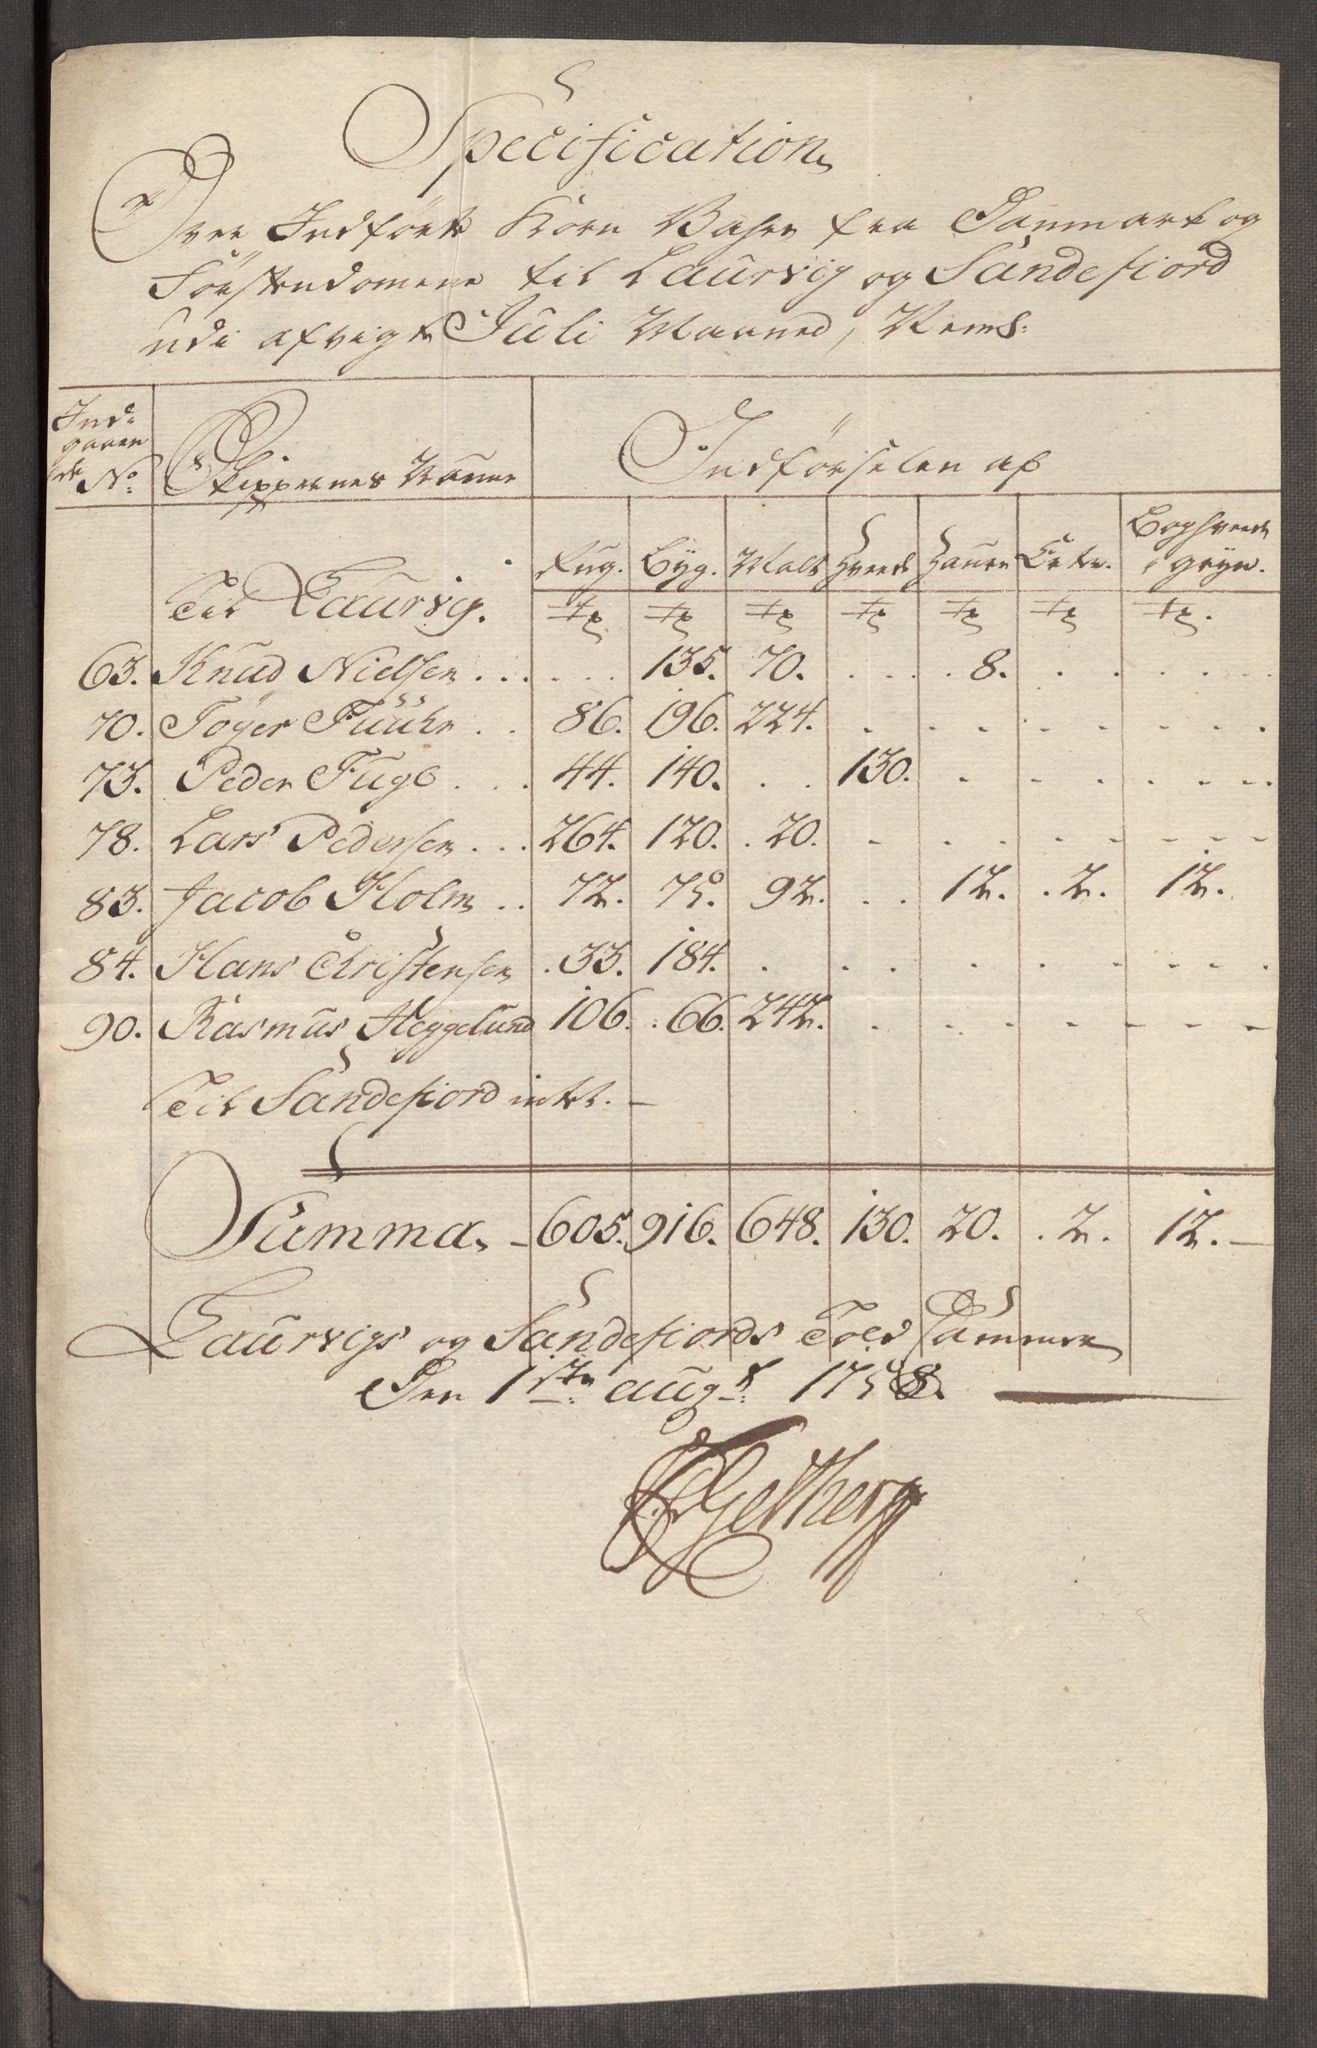 Specification
Over Indførte Korn Vahre fra Danmark og
Førstendomene til Laurvig og Sandefiord
udi afvigte Juli Maaned, Nemb:
Ind-
gaaen
de No: Skippernes Navne Indførselen af
Rug. Byg. Malt Hvede Haure Erter. Boghvede
gryn.
Til Laurvig. Tr Tr Tr Tr Tr Tr Tr.
63. Knud Nielsen . . . . . . 135. 70. . . . . 8. . . . . .
70. Töger Fuuhr . . 86. 196. 224. . . . . . . .
73. Peder Fugl . . . 44. 140. . . 130. . . . . . .
78. Lars Pedersen . . . 264. 120. . 20. . . . . . . . .
83. Jacob Holm . . 72. 75. 92. . . 12. . 2. 12.
84. Hans Christensen . 33. 184. . . . . . . . . .
90. Rasmus Heggelund 106. . 66. 242. . . . . . . .
Til Sandefiord intet. –
Summa, – 605. 916. 648. 130. 20. . 2. 12. –
Laurvigs og Sandefiords Told Cammer
Den 1ste: aug: 1758.